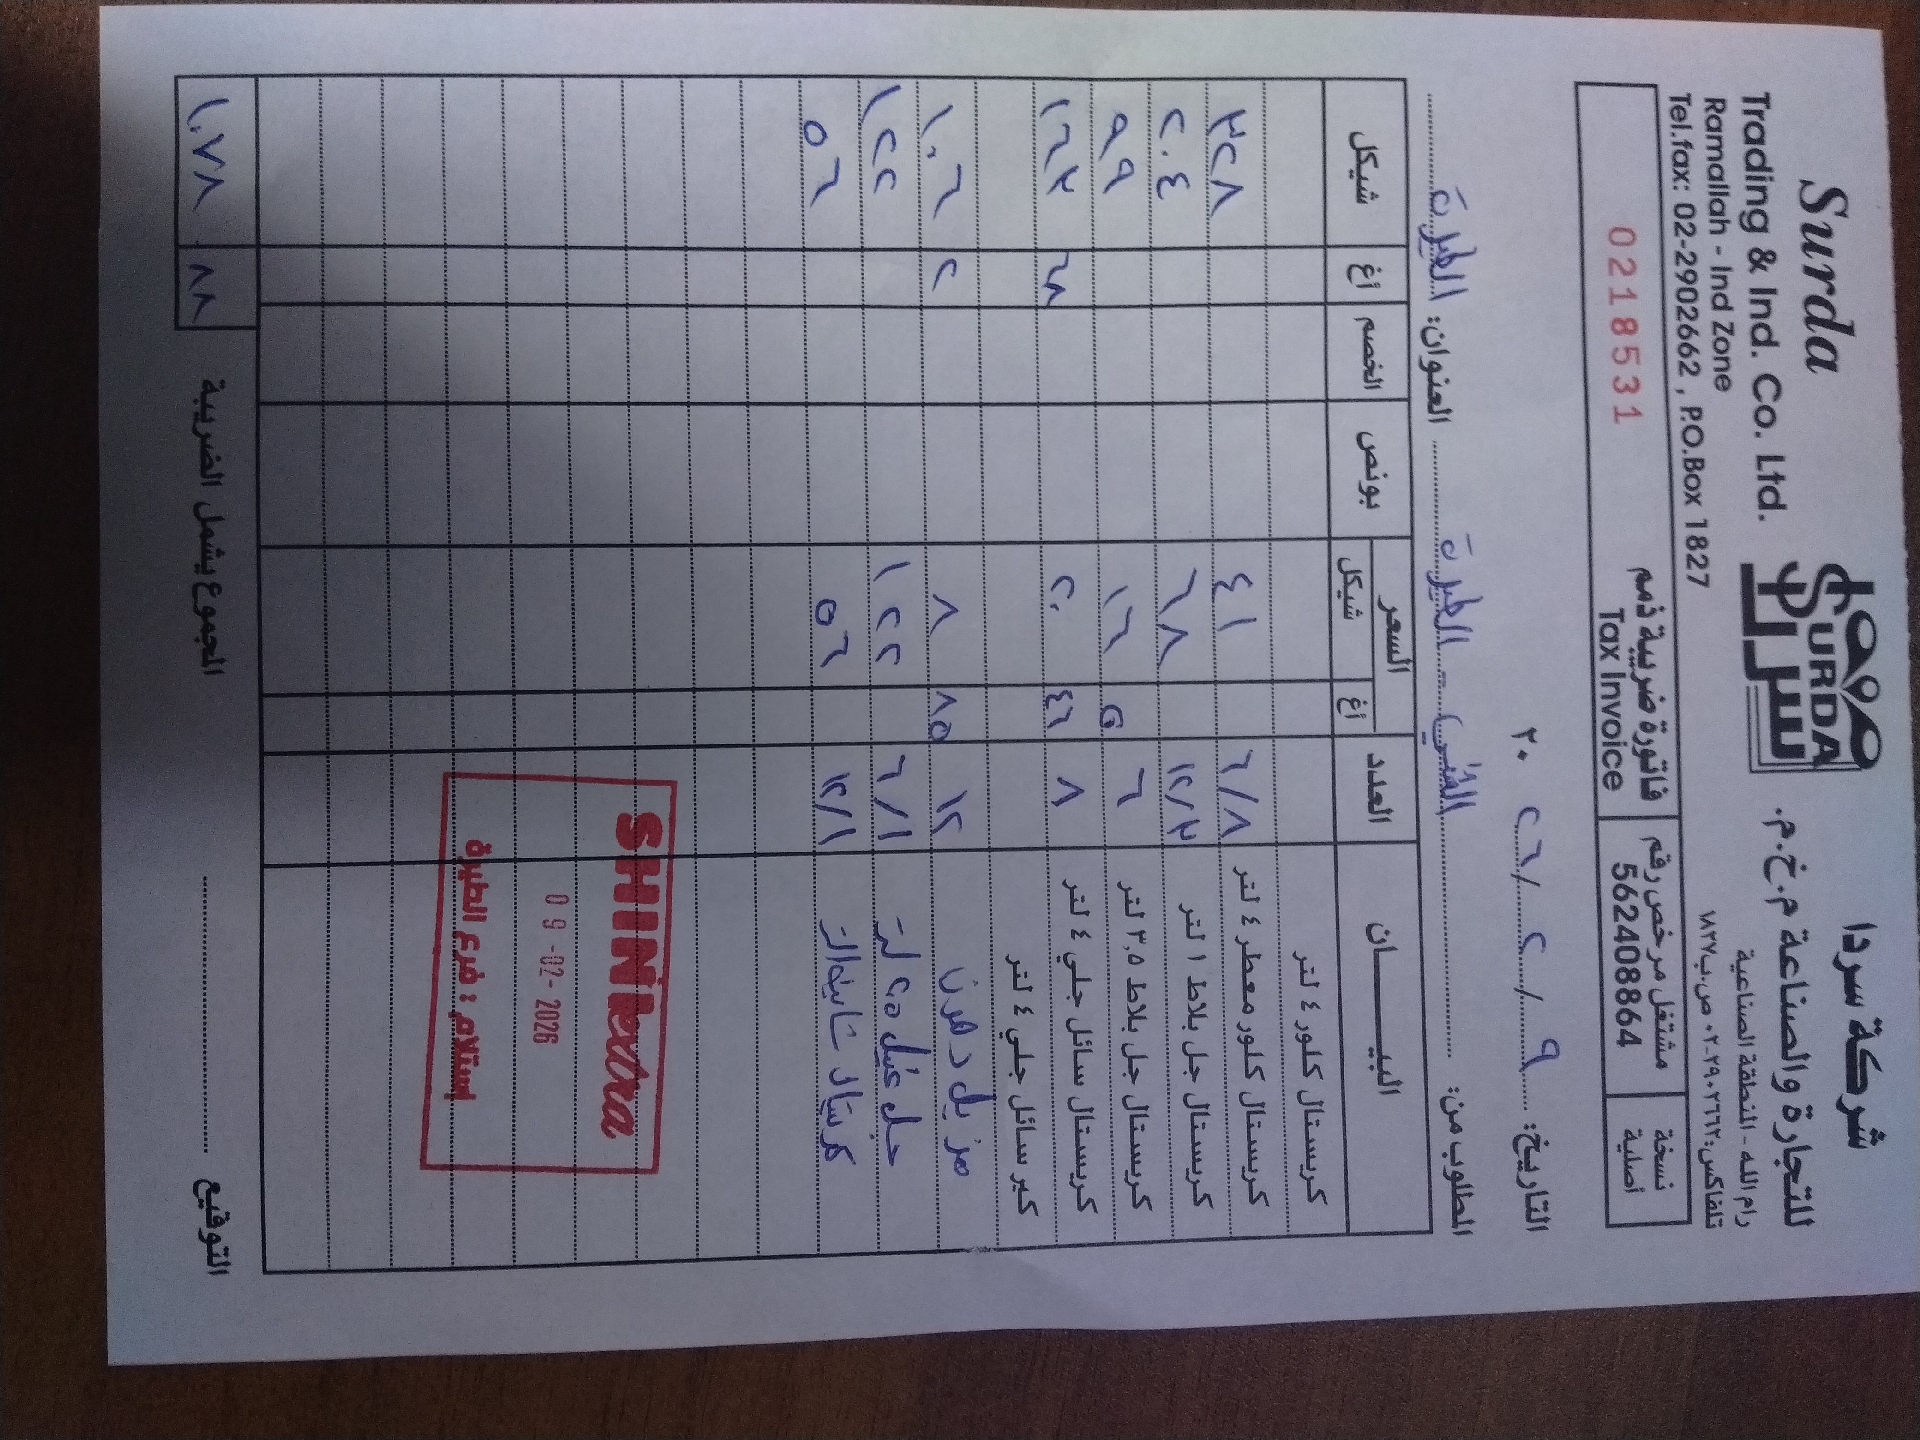 Surda
Trading & Ind. Co. Ltd.
Ramallah - Ind Zone
Tel.fax: 02-2902662 , P.O.Box 1827
SURDA
سردا
شركة سردا
للتجارة والصناعة م.خ.م.
رام الله - المنطقة الصناعية
تلفاكس: ٠٢-٢٩٠٢٦٦٢ ص.ب ١٨٢٧
نسخة أصلية
مشتغل مرخص رقم 562408864
فاتورة ضريبية ذمم
Tax Invoice
0218531
التاريخ: ٩ / ٢ / ٢٦ ٢٠
المطلوب من: الطيرة العنوان: الطيرة
البيـــان العدد السعر شيكل أغ بونص الخصم أغ شيكل
كريستال كلور ٤ لتر
كريستال كلور معطر ٤ لتر ٦/٨ ٤١ ٣٢٨
كريستال جل بلاط ١ لتر ١٢/٣ ٦٨ ٢٠٤
كريستال جل بلاط ٣.٥ لتر ٦ ١٦ ٥ ٩٩
كريستال سائل جلي ٤ لتر ٨ ٢٠ ٤٦ ٦٨ ١٦٣
كير سائل جلي ٤ لتر
مزيل دهون ١٢ ٨ ٨٥ ٢ ١٠٦
جل غسيل ٦/١ ١٢٢ ١٢٢
كريستال ١٢/١ ٥٦ ٥٦
SHINExtra
09-02-2026
إستلام : فرع الطيرة
التوقيع المجموع يشمل الضريبة ٨٨ ١٠٧٨